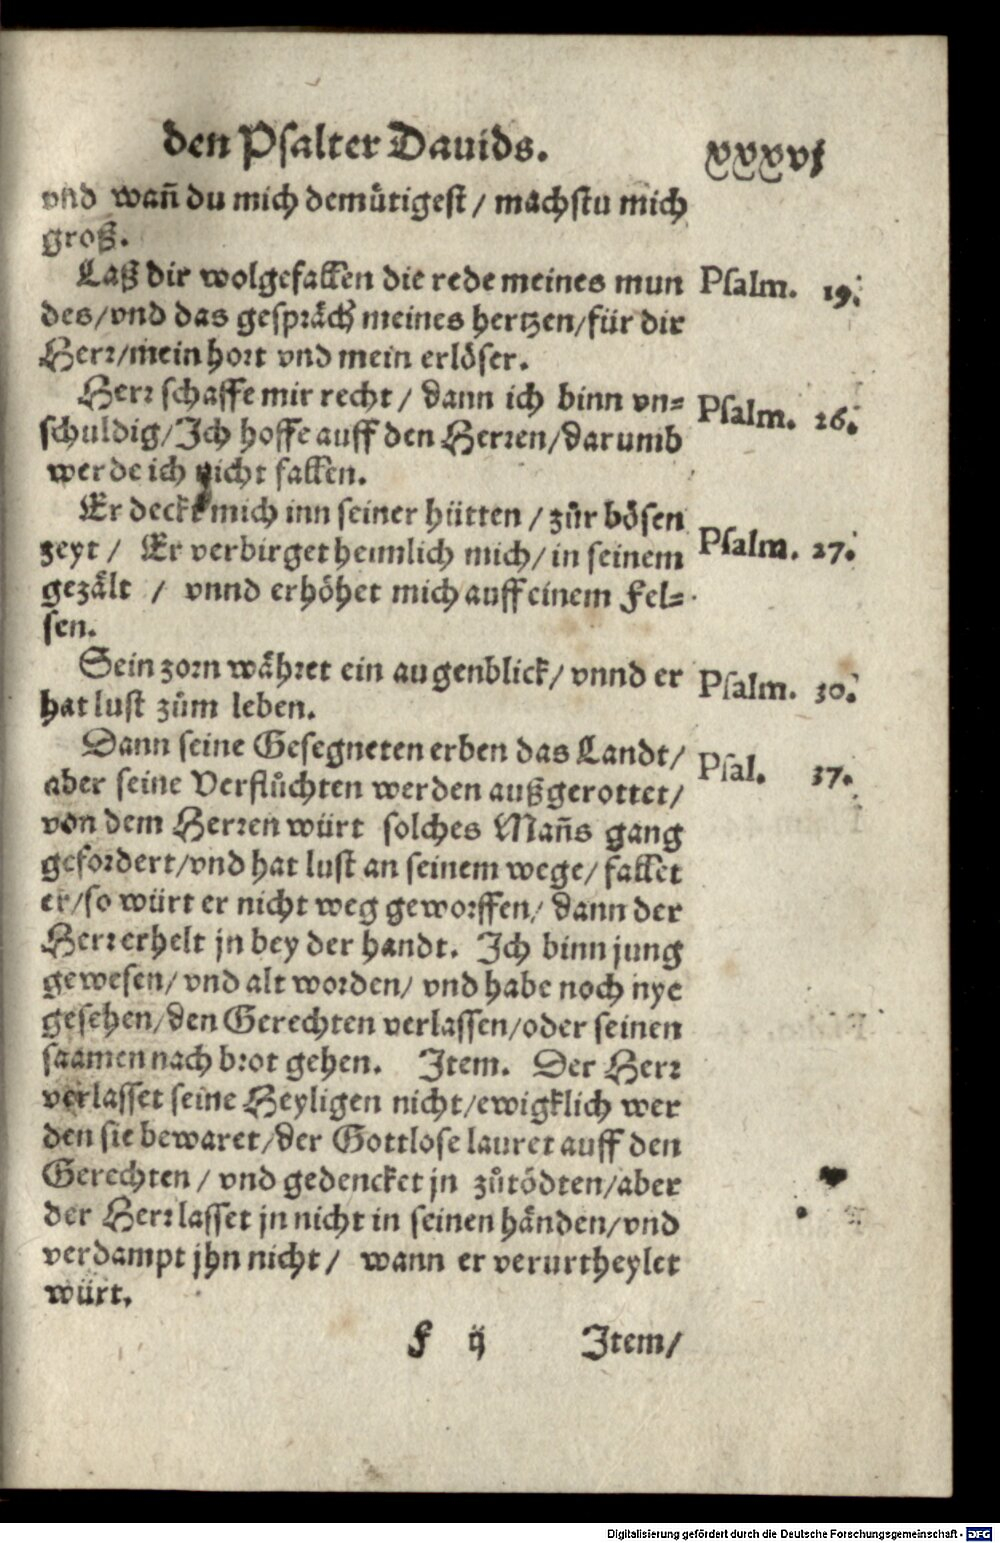 den Psalter Dauids. xxxvj
vnd wañ du mich demuͤtigest / machstu mich
groß.
Laß dir wolgefallen die rede meines mun Psalm. 19.
des/vnd das gespraͤch meines hertzen/für dir
Herr/mein hort vnd mein erloͤser.
Herr schaffe mir recht / dann ich binn vn= Psalm. 26.
schuldig/Ich hoffe auff den Herren/darumb
werde ich nicht fallen.
Er deckt mich inn seiner huͤtten / zuͦr boͤsen
zeyt / Er verbirget heimlich mich/in seinem Psalm. 27.
gezaͤlt / vnnd erhoͤhet mich auff einem Fel=
sen.
Sein zorn waͤhret ein augenblick/ vnnd er Psalm. 30.
hat lust zuͦm leben.
Dann seine Gesegneten erben das Landt/ Psal. 37.
aber seine Verfluͦchten werden außgerottet/
von dem Herren würt solches Mañs gang
gefordert/vnd hat lust an seinem wege/ fallet
er/so würt er nicht weg geworffen/ dann der
Herr erhelt jn bey der handt. Ich binn jung
gewesen/ vnd alt worden/ vnd habe noch nye
gesehen/den Gerechten verlassen/oder seinen
saamen nach brot gehen. Item. Der Herr
verlasset seine Heyligen nicht/ewigklich wer
den sie bewaret/der Gottlose lauret auff den
Gerechten / vnd gedencket jn zuͦtoͤdten/aber
der Herr lasset jn nicht in seinen haͤnden/vnd
verdampt jhn nicht / wann er verurtheylet
würt.
F ij Item/
Digitalisierung gefördert durch die Deutsche Forschungsgemeinschaft - DFG